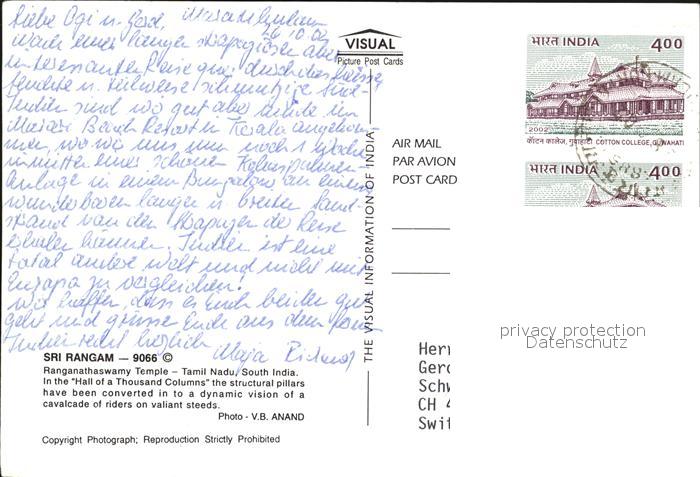 Liebe Ogi u. Gerd,
26.10.02
Nach einer langen strapaziösen aber
interessanten Reise quer durch das heisse
feuchte u. teilweise schmutzige Süd-
Indien sind wir gut aber müde im
Beach Resort in Kerala angekom-
men, wo wir uns nun noch 1 Woche
inmitten einer schönen Kokospalmen-
Anlage in einem Bungalow an einem
wunderbaren langen u. breiten Sand-
strand von den Strapazen der Reise
erholen können. Indien ist eine
total andere Welt und nicht mit
Europa zu vergleichen!
Wir hoffen, dass es Euch beiden gut
geht und grüssen Euch aus dem fernen
Indien recht herzlich
SRI RANGAM — 9066 ©
Ranganathaswamy Temple – Tamil Nadu, South India.
In the "Hall of a Thousand Columns" the structural pillars
have been converted in to a dynamic vision of a
cavalcade of riders on valiant steeds.
Photo - V.B. ANAND
Copyright Photograph; Reproduction Strictly Prohibited
VISUAL
Picture Post Cards
THE VISUAL INFORMATION OF INDIA
AIR MAIL
PAR AVION
POST CARD
भारत INDIA 400
2002
कॉटन कालेज, गुवाहाटी COTTON COLLEGE, GUWAHATI
भारत INDIA 400
privacy protection
Datenschutz
Herr
Gero
Schw
CH 4
Swit